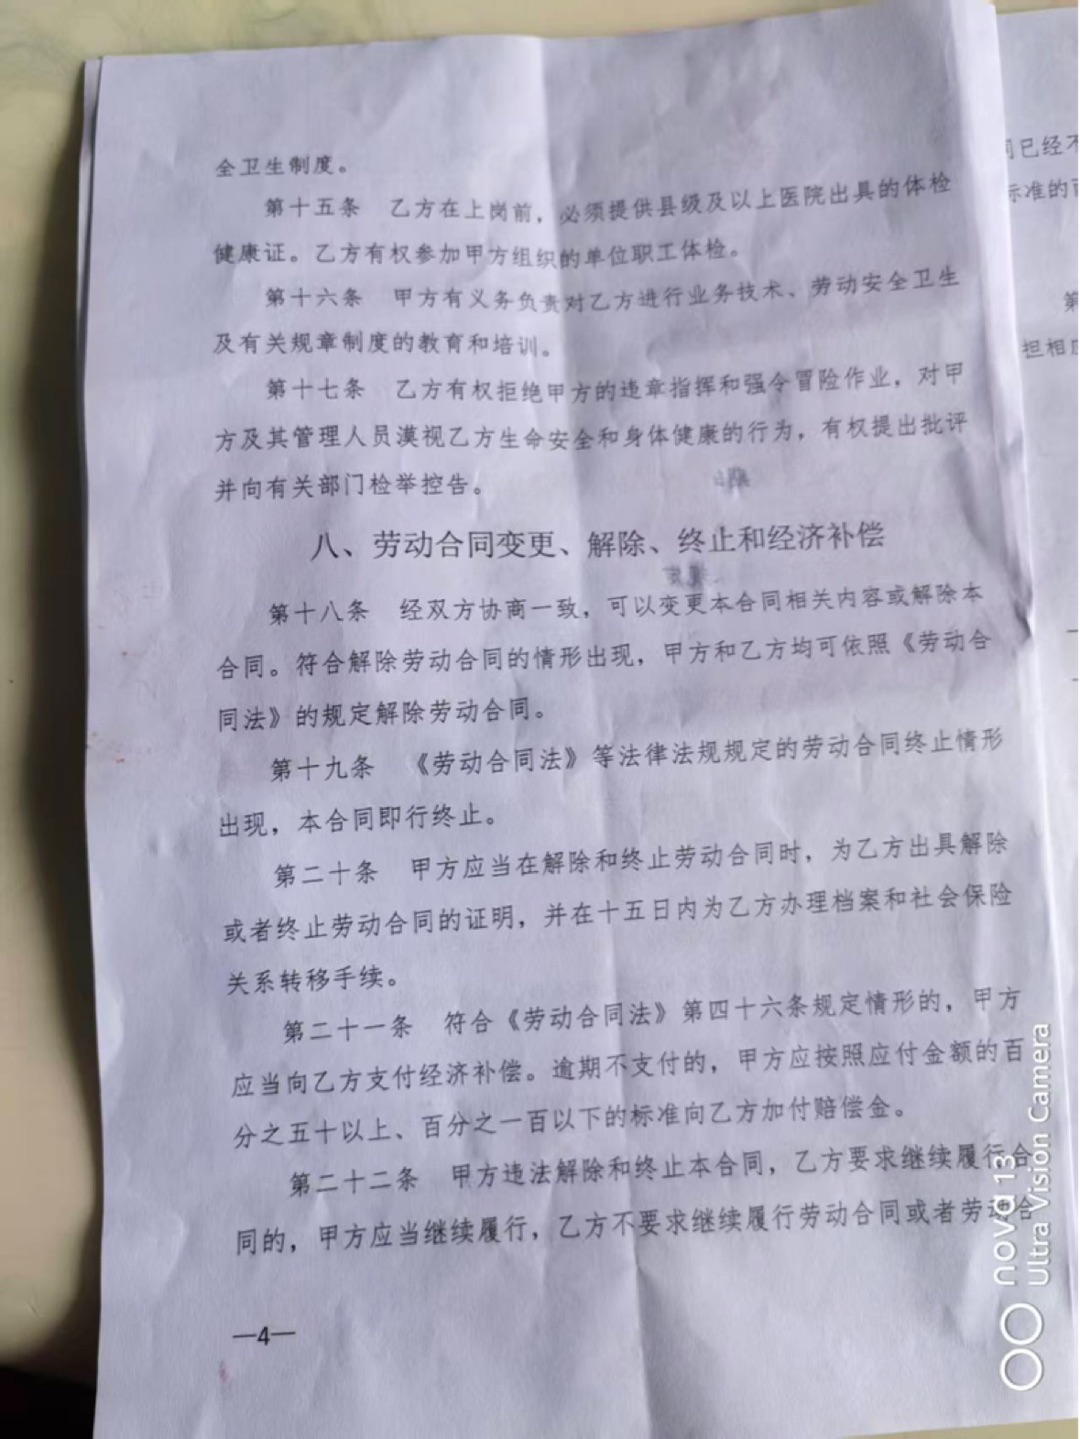 全卫生制度。
第十五条　乙方在上岗前，必须提供县级及以上医院出具的体检
健康证。乙方有权参加甲方组织的单位职工体检。
第十六条　甲方有义务负责对乙方进行业务技术、劳动安全卫生
及有关规章制度的教育和培训。
第十七条　乙方有权拒绝甲方的违章指挥和强令冒险作业，对甲
方及其管理人员漠视乙方生命安全和身体健康的行为，有权提出批评
并向有关部门检举控告。
八、劳动合同变更、解除、终止和经济补偿
第十八条　经双方协商一致，可以变更本合同相关内容或解除本
合同。符合解除劳动合同的情形出现，甲方和乙方均可依照《劳动合
同法》的规定解除劳动合同。
第十九条　《劳动合同法》等法律法规规定的劳动合同终止情形
出现，本合同即行终止。
第二十条　甲方应当在解除和终止劳动合同时，为乙方出具解除
或者终止劳动合同的证明，并在十五日内为乙方办理档案和社会保险
关系转移手续。
第二十一条　符合《劳动合同法》第四十六条规定情形的，甲方
应当向乙方支付经济补偿。逾期不支付的，甲方应按照应付金额的百
分之五十以上、百分之一百以下的标准向乙方加付赔偿金。
第二十二条　甲方违法解除和终止本合同，乙方要求继续履行合
同的，甲方应当继续履行，乙方不要求继续履行劳动合同或者劳动合
—4—
已经不
标准的
第
担相应
nova 13
Ultra Vision Camera